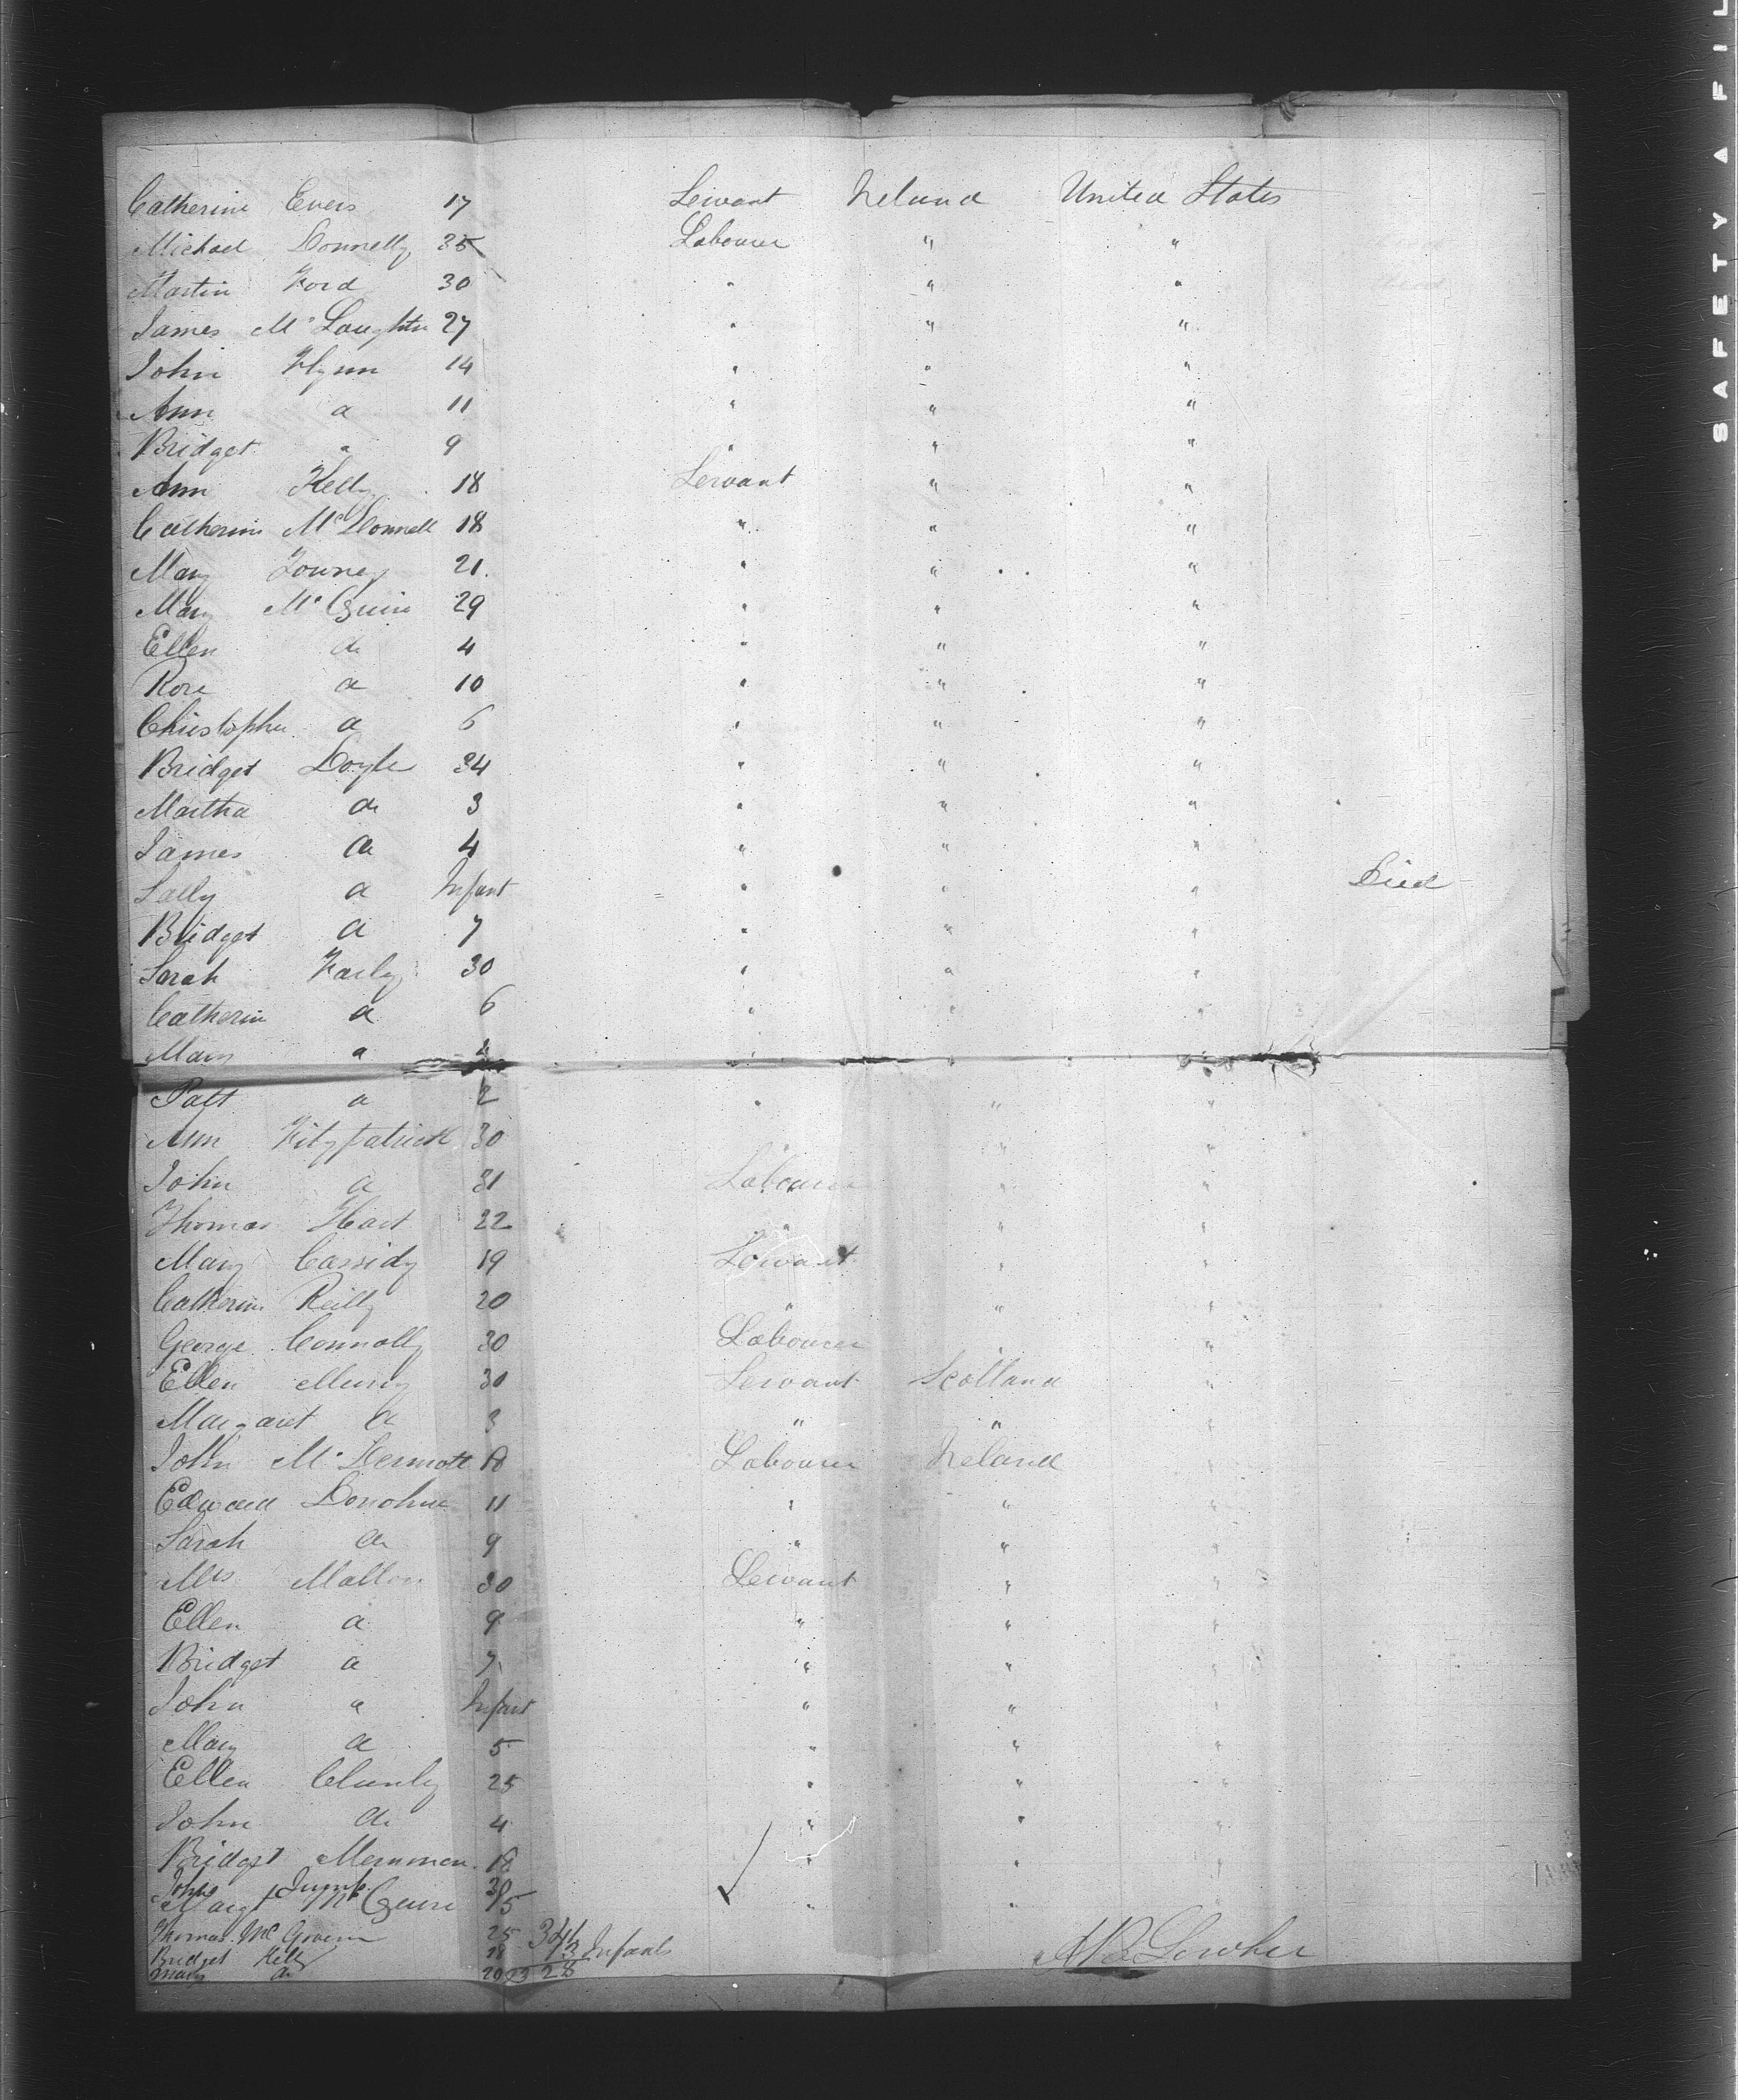 Catherine Evers 17 Servant Ireland United States
Michael Donnelly 35 Labourer " "
Martin Ford 30 " " "
James McLaughlin 27 " " "
John Flynn 14 " " "
Ann do 11 " " "
Bridget " 9 " " "
Ann Kelly 18 Servant " "
Catherine McDonnell 18 " " "
Mary 21 " " "
Mary McGuire 29 " " "
Ellen do 4 " " "
Rose do 10 " " "
Christopher do 6 " " "
Bridget Doyle 34 " " "
Martha do 3 " " "
James do 4 " " "
Sally do Infant " " " Died
Bridget do 7 " " "
Sarah Farly 30 " " "
Catherine do 6 " " "
Mary do " " "
Patt do 2 " " "
Ann Fitzpatrick 30 " " "
John do 31 Labourer " "
Thomas Hart 22 " " "
Mary Cassidy 19 Servant " "
Catherine Reilly 20 " " "
George Connolly 30 Labourer " "
Ellen 30 Servant Scotland "
Margaret do 3 " " "
John McDermott 18 Labourer Ireland "
Edward Donohue 11 " " "
Sarah do 9 " " "
Mrs Mallon 30 Servant " "
Ellen do 9 " " "
Bridget do 7 " " "
John do Infant " " "
Mary do 5 " " "
Ellen 25 " " "
John do 4 " " "
Bridget 18 " "
John Jump
Margt McGuire " "
Thomas McGovern 25
Bridget Kelly 18 13 Infants
Mary do 20 28
SAFETY FIL